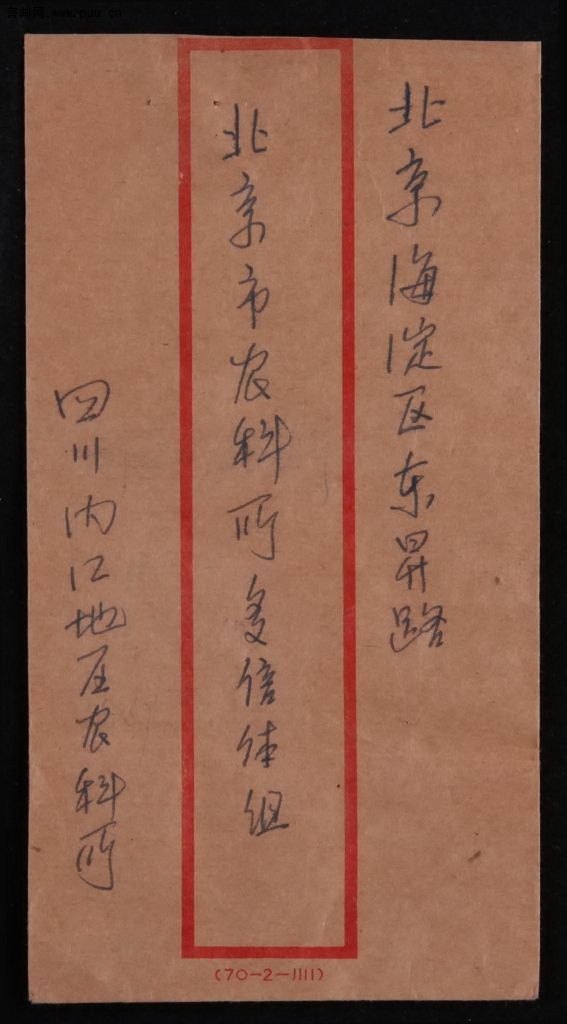 北京海淀区东昇路
北京市农科所多倍体组
四川内江地区农科所
(70-2-1111)
www.puu.cn